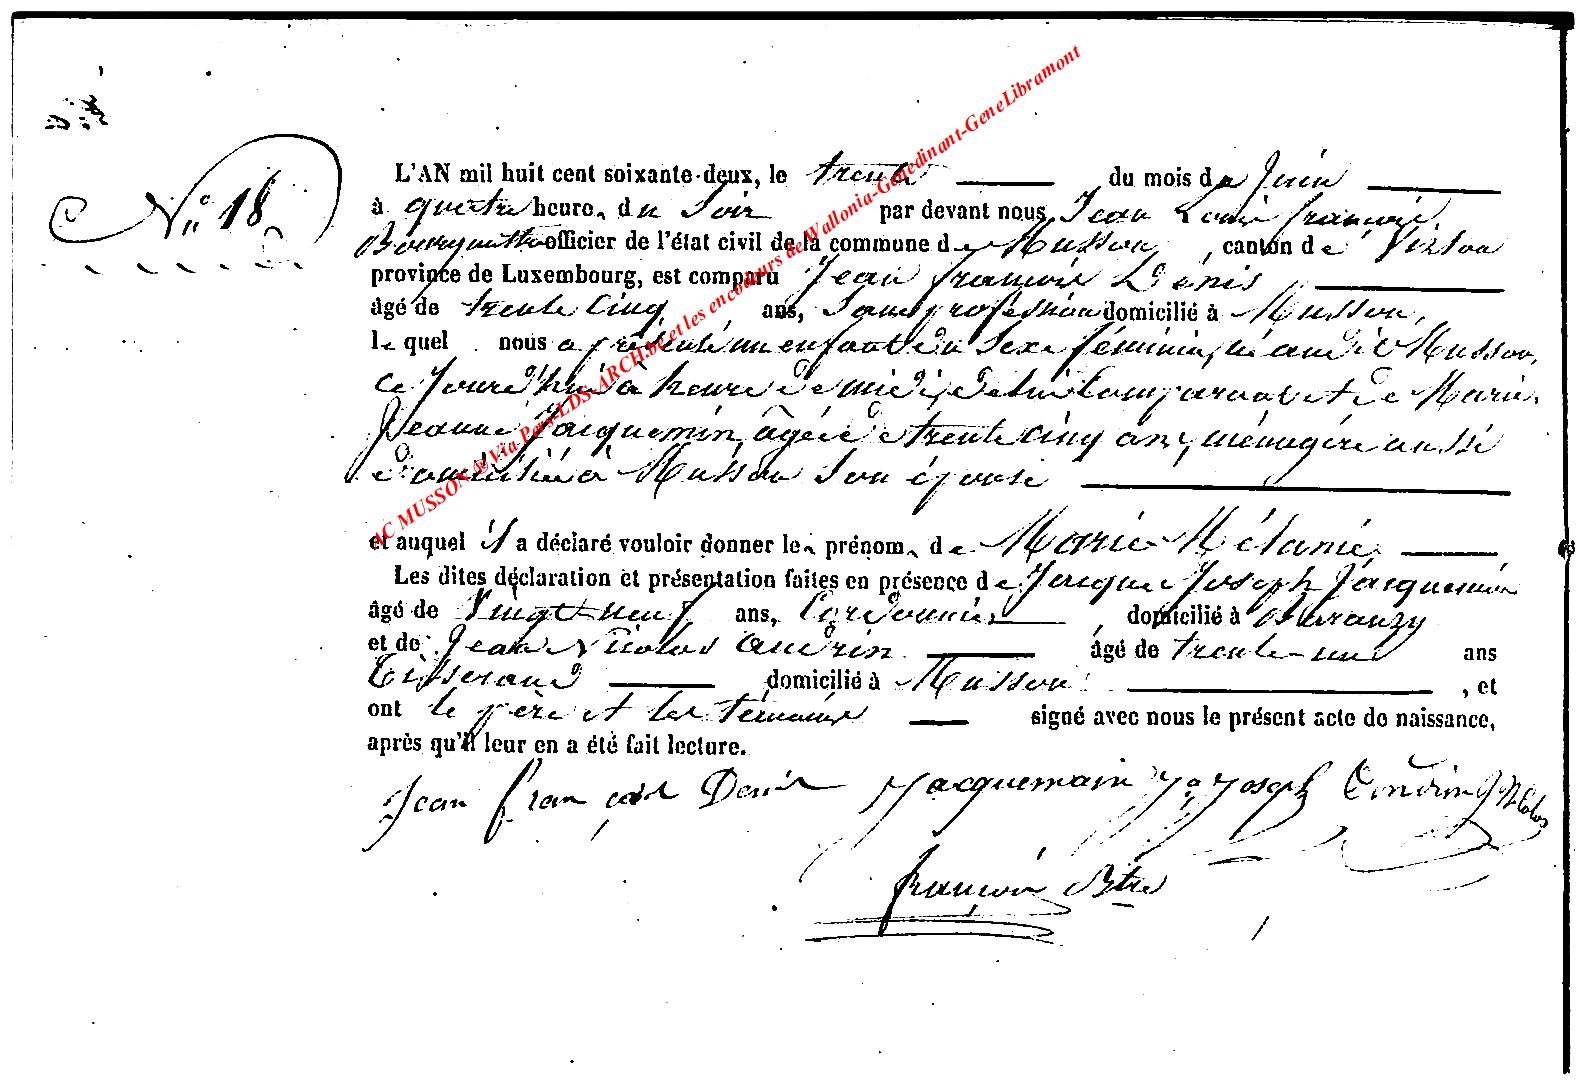 N° 18
L'AN mil huit cent soixante-deux, le trente du mois de Juin
à quatre heure, du Soir par devant nous, Jean Louis françois
officier de l'état civil de la commune de Musson, canton de Virton
province de Luxembourg, est comparu Jean françois Denis
âgé de trente cinq ans, Sans profession domicilié à Musson,
le quel nous a présenté un enfant du Sexe féminin, né audit Musson,
ce Jourd'hui à heure de midi, de lui Comparant et de Marie
Jeanne Jacquemin, âgée de trente cinq ans, ménagère aussi
domiciliée à Musson Son épouse
et auquel il a déclaré vouloir donner les prénoms de Marie Mélanie
Les dites déclaration et présentation faites en présence de Jacque Joseph Jacquemin
âgé de Vingt-neuf ans, Cordonnier, domicilié à Baranzy
et de Jean Nicolas Andrin âgé de trente-un ans
Tisserand domicilié à Musson, et
ont le père et les témoins signé avec nous le présent acte de naissance,
après qu'il leur en a été fait lecture.
Jean françois Denis Jacquemain Jq Joseph J Nicolas
françois Btre
AC MUSSON @ Via Pers-LDS-ARCH.be et les encodeurs de Wallonia-Genedinant-GeneLibramont